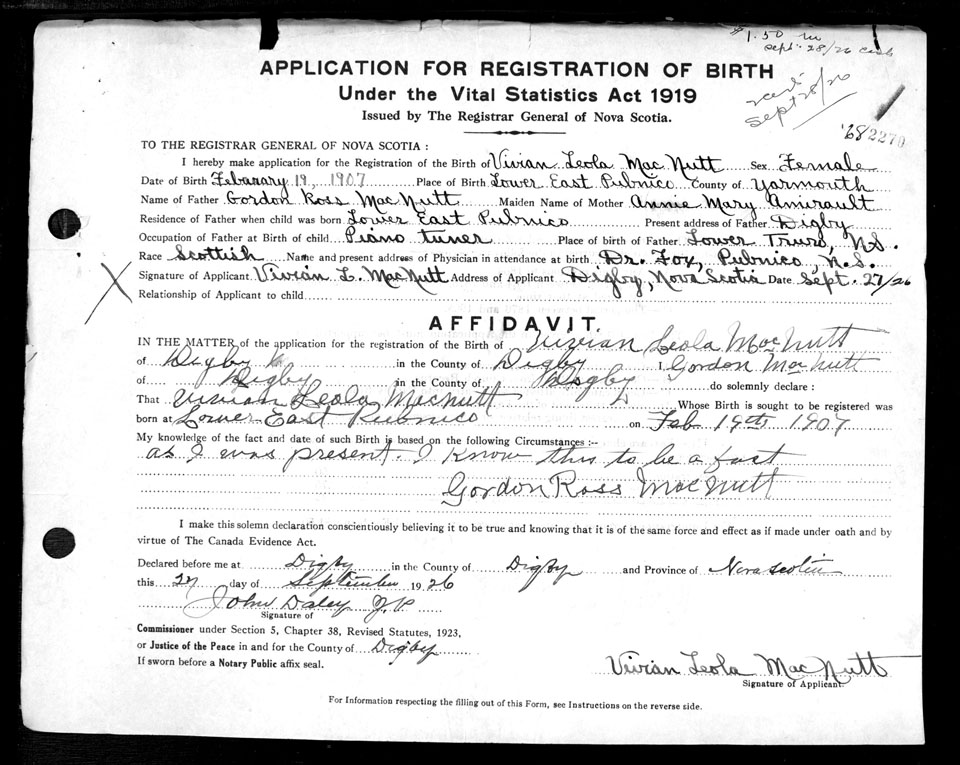 $1.50 m
Sept. 28/26 cash
APPLICATION FOR REGISTRATION OF BIRTH
Under the Vital Statistics Act 1919
Issued by The Registrar General of Nova Scotia.
Sept 28/26
682270
TO THE REGISTRAR GENERAL OF NOVA SCOTIA :
I hereby make application for the Registration of the Birth of Vivian Leola Mac Nutt Sex Female
Date of Birth Febarary 19, 1907 Place of Birth Lower East Pubnico County of Yarmouth
Name of Father Gordon Ross Mac Nutt Maiden Name of Mother Annie Mary Amirault
Residence of Father when child was born Lower East Pubnico Present address of Father Digby
Occupation of Father at Birth of child Piano tuner Place of birth of Father Lower Truro, N.S.
Race Scottish Name and present address of Physician in attendance at birth Dr. Fox, Pubnico, N.S.
Signature of Applicant Vivian L. MacNutt Address of Applicant Digby, Nova Scotia Date Sept. 27/26
Relationship of Applicant to child
AFFIDAVIT.
IN THE MATTER of the application for the registration of the Birth of Vivian Leola MacNutt
of Digby in the County of Digby I, Gordon MacNutt
of Digby in the County of Digby do solemnly declare :
That Vivian Leola MacNutt Whose Birth is sought to be registered was
born at Lower East Pubnico on Feb 19th 1907
My knowledge of the fact and date of such Birth is based on the following Circumstances :--
as I was present. I know this to be a fact
Gordon Ross MacNutt
I make this solemn declaration conscientiously believing it to be true and knowing that it is of the same force and effect as if made under oath and by
virtue of The Canada Evidence Act.
Declared before me at Digby in the County of Digby and Province of Nova Scotia
this 27 day of September 1926
John Daley J.P
Signature of
Commissioner under Section 5, Chapter 38, Revised Statutes, 1923,
or Justice of the Peace in and for the County of Digby
If sworn before a Notary Public affix seal.
Vivian Leola MacNutt
Signature of Applicant.
For Information respecting the filling out of this Form, see Instructions on the reverse side.